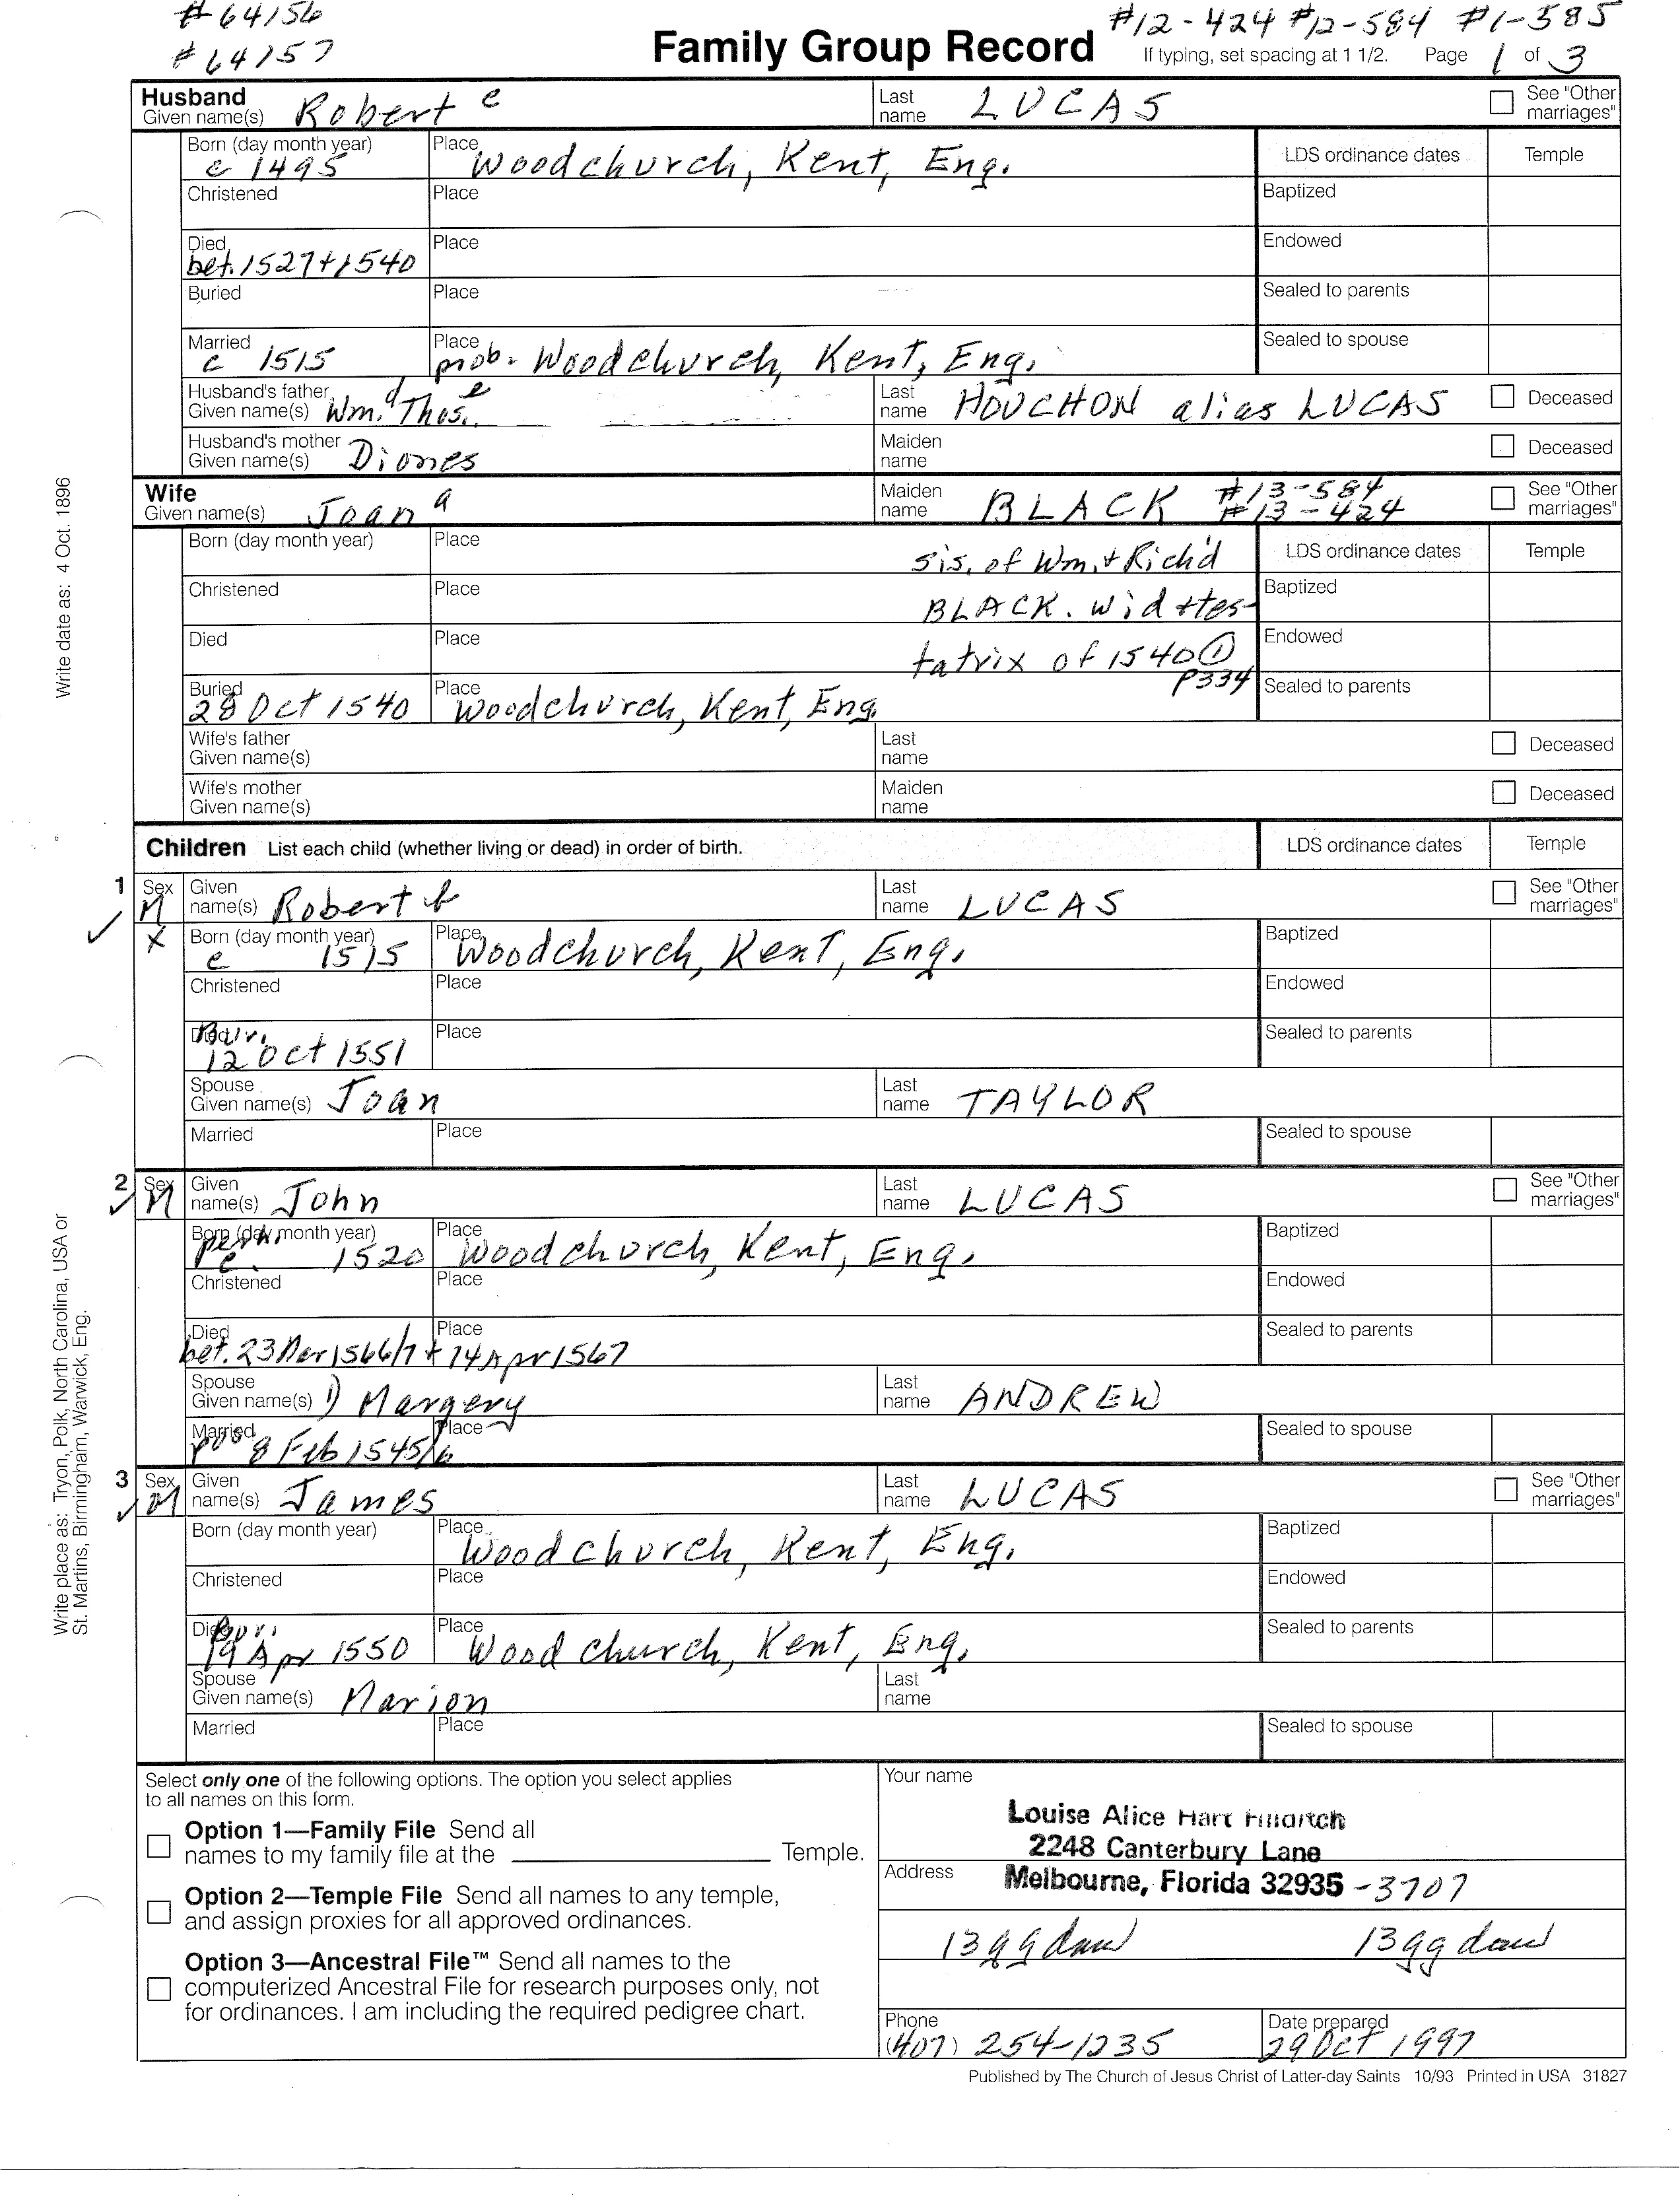 #64156
#64157
#12-424 #12-584 #1-585
Family Group Record
If typing, set spacing at 1 1/2. Page 1 of 3
Husband
Given name(s) Robert e
Last name LUCAS
See "Other marriages"
Born (day month year) c 1495
Place Woodchurch, Kent, Eng.
LDS ordinance dates
Temple
Christened
Place
Baptized
Died bet. 1527+1540
Place
Endowed
Buried
Place
Sealed to parents
Married c 1515
Place prob. Woodchurch, Kent, Eng.
Sealed to spouse
Husband's father Given name(s) Wm. d Thos. e
Last name HOUCHON alias LUCAS
Deceased
Husband's mother Given name(s) Diones
Maiden name
Deceased
Wife
Given name(s) Joan a
Maiden name BLACK #13-584
#13-424
See "Other marriages"
Born (day month year)
Place
sis. of Wm. + Rich'd
LDS ordinance dates
Temple
Christened
Place
BLACK. wid + tes-
Baptized
Died
Place
tatrix of 1540 ①
P334
Endowed
Buried 28 Oct 1540
Place Woodchurch, Kent, Eng.
Sealed to parents
Wife's father Given name(s)
Last name
Deceased
Wife's mother Given name(s)
Maiden name
Deceased
Children List each child (whether living or dead) in order of birth.
LDS ordinance dates
Temple
1 Sex M
X
Given name(s) Robert f
Last name LUCAS
See "Other marriages"
Born (day month year) c 1515
Place Woodchurch, Kent, Eng.
Baptized
Christened
Place
Endowed
Died Bur. 12 Oct 1551
Place
Sealed to parents
Spouse Given name(s) Joan
Last name TAYLOR
Married
Place
Sealed to spouse
2 Sex M
Given name(s) John
Last name LUCAS
See "Other marriages"
Born (day month year) perh. c. 1520
Place Woodchurch, Kent, Eng.
Baptized
Christened
Place
Endowed
Died bet. 23 Mar 1566/7 + 14 Apr 1567
Place
Sealed to parents
Spouse Given name(s) 1) Margery
Last name ANDREW
Married pos 8 Feb 1545/6
Place
Sealed to spouse
3 Sex M
Given name(s) James
Last name LUCAS
See "Other marriages"
Born (day month year)
Place Woodchurch, Kent, Eng.
Baptized
Christened
Place
Endowed
Died Bur. 19 Apr 1550
Place Woodchurch, Kent, Eng.
Sealed to parents
Spouse Given name(s) Marion
Last name
Married
Place
Sealed to spouse
Select only one of the following options. The option you select applies
to all names on this form.
Option 1—Family File Send all
names to my family file at the Temple.
Option 2—Temple File Send all names to any temple,
and assign proxies for all approved ordinances.
Option 3—Ancestral File™ Send all names to the
computerized Ancestral File for research purposes only, not
for ordinances. I am including the required pedigree chart.
Your name
Louise Alice Hart
2248 Canterbury Lane
Address Melbourne, Florida 32935-3707
13 gg dau 13 gg dau
Phone (407) 254-1235
Date prepared 29 Oct 1997
Published by The Church of Jesus Christ of Latter-day Saints 10/93 Printed in USA 31827
Write date as: 4 Oct. 1896
Write place as: Tryon, Polk, North Carolina, USA or
St. Martins, Birmingham, Warwick, Eng.